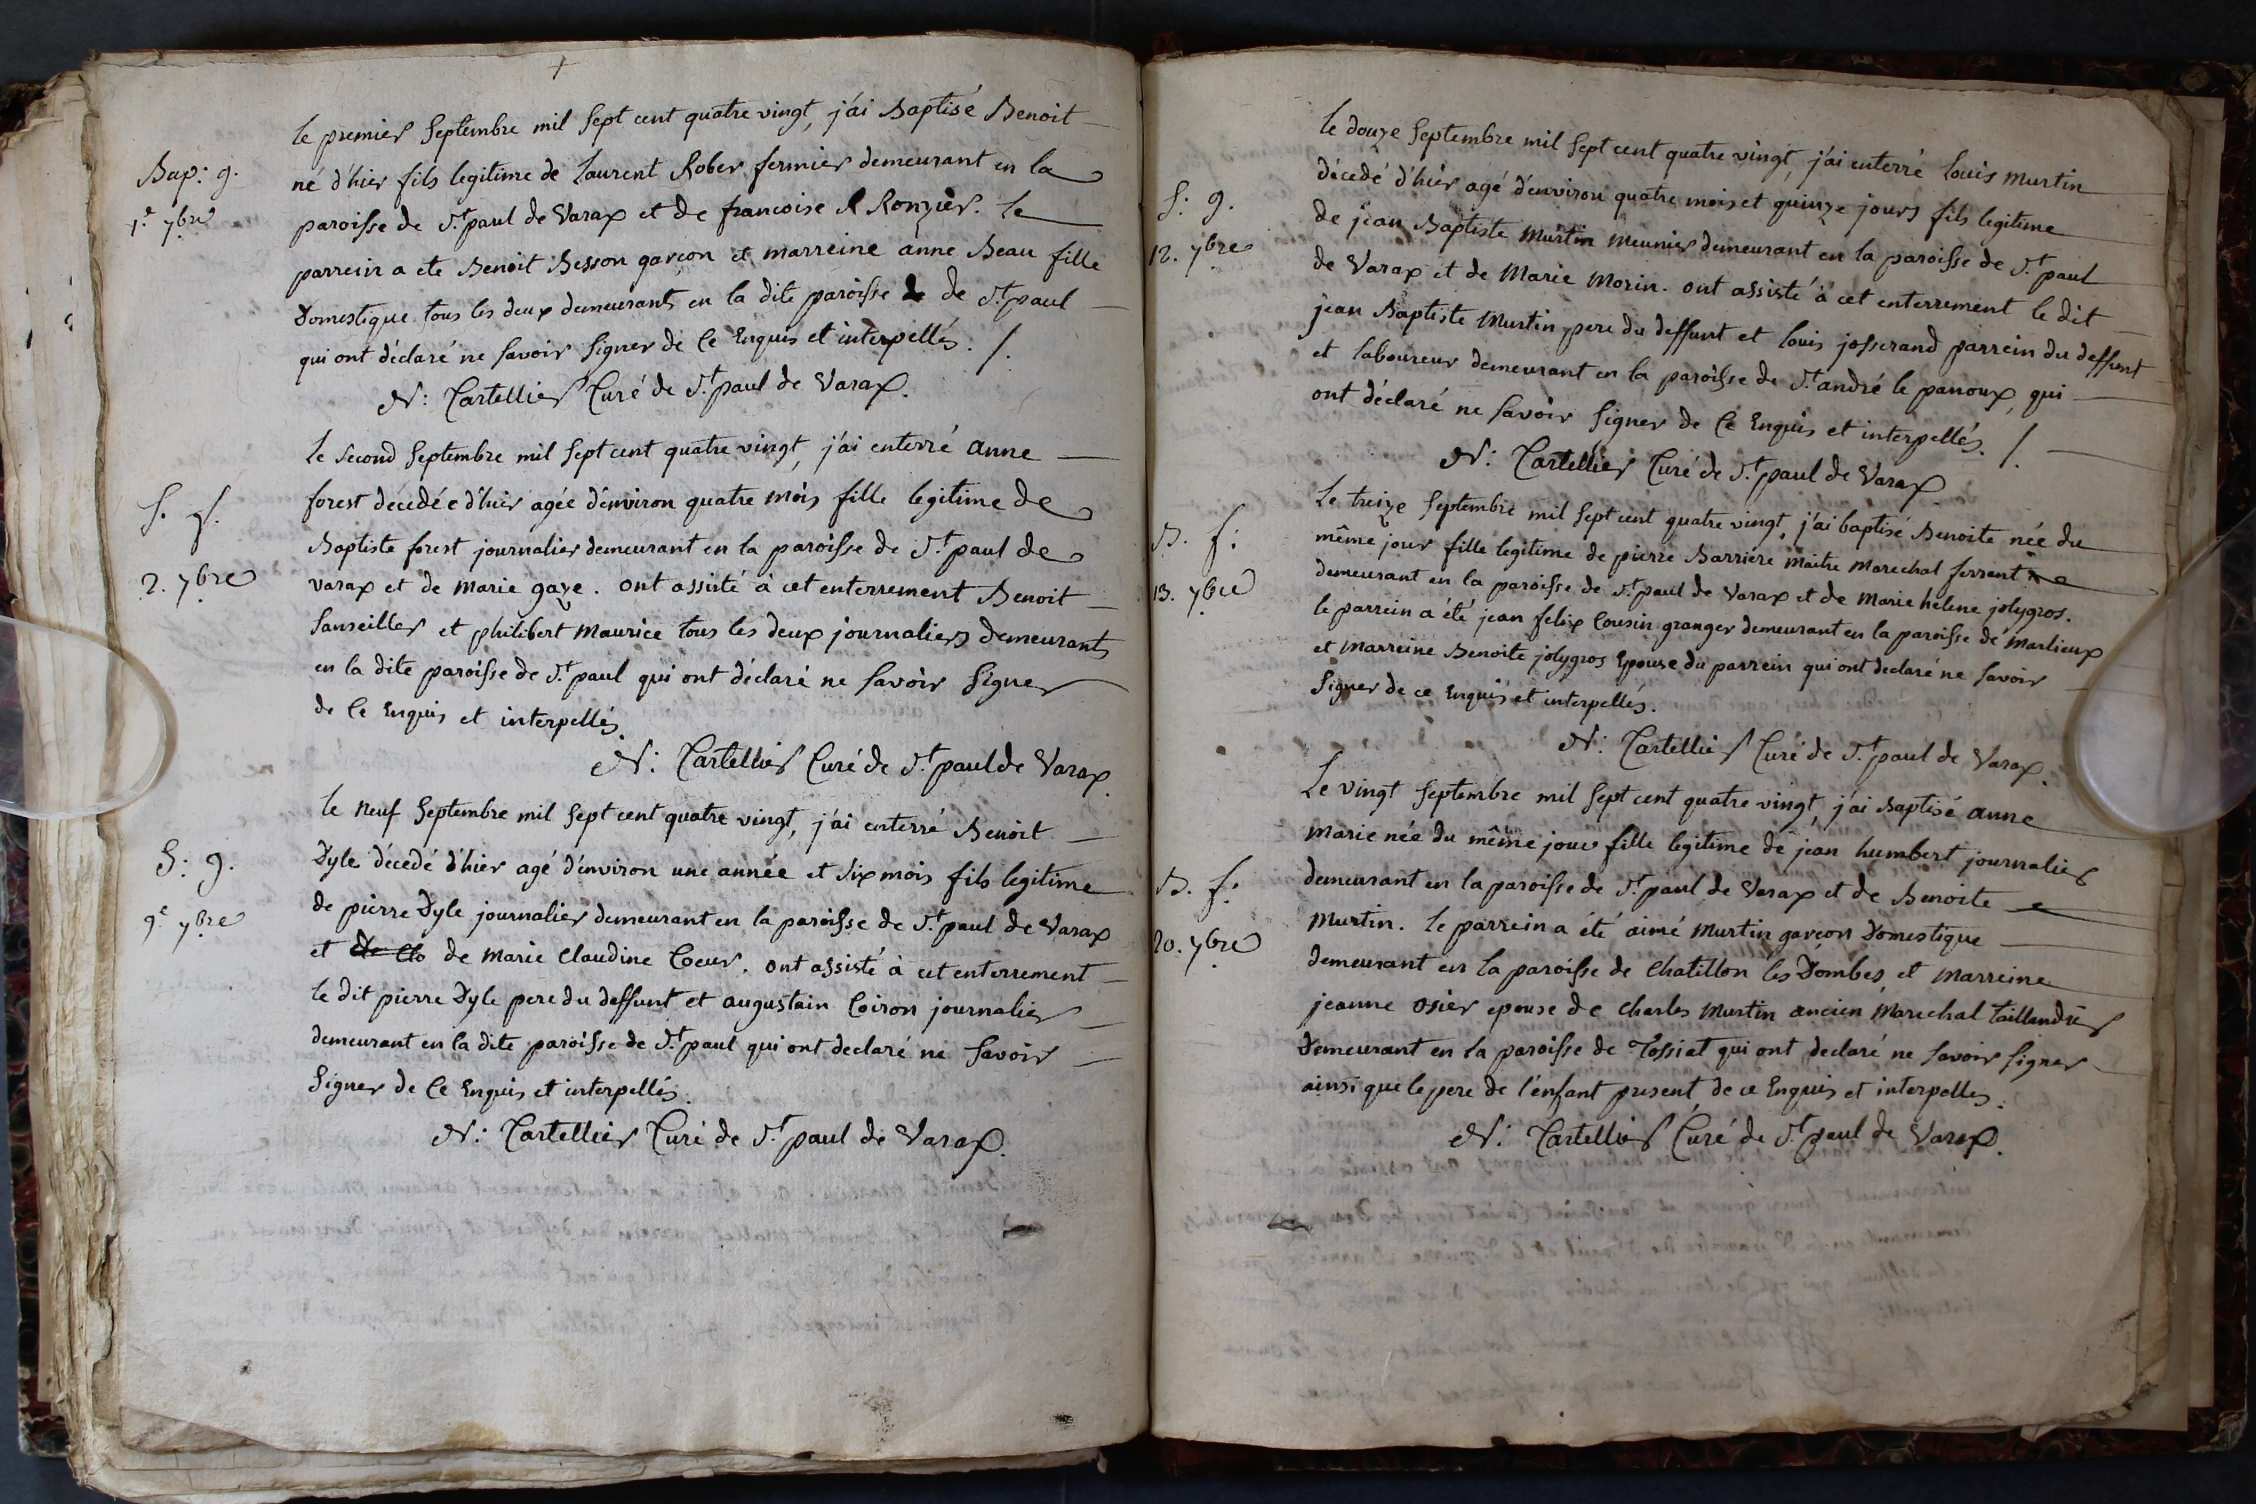 le premier Septembre mil Sept cent quatre vingt, j'ai Baptisé Benoit
Bap: g.
né d'hier fils legitime de Laurent Rober fermier demeurant en la
1.e 7bre
paroisse de S.t paul de Varax et de francoise Ronzier. le
parrein a ete Benoit Besson garcon et marreine anne Beau fille
Domestique tous les deux demeurants en la dite paroisse de S.t paul
qui ont déclaré ne savoir signer de Ce Enquis et interpellés. /.
N: Cartellier Curé de S.t paul de Varax.
Le Second Septembre mil Sept cent quatre vingt, j'ai enterré anne
S. f.
forest décedée d'hier agée d'environ quatre mois fille legitime de
2. 7bre
Baptiste forest journalier demeurant en la paroisse de S.t paul de
varax et de marie gaze. ont assisté à cet enterrement Benoit
Sanseiller et philibert Maurice tous les deux journaliers demeurants
en la dite paroisse de S.t paul qui ont déclaré ne Savoir Signer
de Ce Enquis et interpellés.
N: Cartellier Curé de S.t paul de Varax.
le neuf Septembre mil Sept cent quatre vingt, j'ai enterré Benoit
S: g.
Dyle décedé d'hier agé d'environ une année et Six mois fils legitime
9.e 7bre
de pierre Dyle journalier demeurant en la paroisse de S.t paul de Varax
et de Clo de Marie Claudine Coeur. ont assisté à cet enterrement
le dit pierre Dyle pere du deffunt et augustain Coiron journalier
demeurant en la dite paroisse de S.t paul qui ont declaré ne Savoir
Signer de Ce Enquis et interpellés.
N: Cartellier Curé de S.t paul de Varax.
Le douze Septembre mil Sept cent quatre vingt, j'ai enterré Louis Murtin
S: g.
décedé d'hier agé d'environ quatre mois et quinze jours fils legitime
12. 7bre
de jean Baptiste Murtin Meunier demeurant en la paroisse de S.t paul
de Varax et de Marie Morin. ont assisté à cet enterrement le dit
jean Baptiste Murtin pere du deffunt et Louis josserand parrein du deffunt
et laboureur demeurant en la paroisse de S.t andré le panoux, qui
ont déclaré ne Savoir Signer de Ce Enquis et interpellés. /.
N: Cartellier Curé de S.t paul de Varax
Le treize Septembre mil Sept cent quatre vingt, j'ai baptisé Benoite née du
B. f:
même jour fille legitime de pierre Barriere Maitre Marechal ferrent
13. 7bre
demeurant en la paroisse de S.t paul de Varax et de Marie helene jolygros.
le parrein a été jean felix Cousin granger demeurant en la paroisse de Marlieux
et Marreine Benoite jolygros Epouse du parrein qui ont declaré ne Savoir
Signer de ce Enquis et interpellés.
N: Cartellier Curé de S.t paul de Varax.
Le vingt Septembre mil Sept cent quatre vingt, j'ai Baptisé anne
Marie née du même jour fille legitime de jean humbert journalier
B. f:
demeurant en la paroisse de S.t paul de Varax et de Benoite
20. 7bre
Murtin. le parrein a été aimé Murtin garcon Domestique
demeurant en la paroisse de Chatillon les Dombes, et marreine
jeanne Osier epouse de Charles Murtin ancien Marechal Taillandier
Demeurant en la paroisse de Tossiat qui ont declaré ne Savoir Signer
ainsi que le pere de l'enfant present, de ce Enquis et interpelles.
N: Cartellier Curé de S.t paul de Varax.